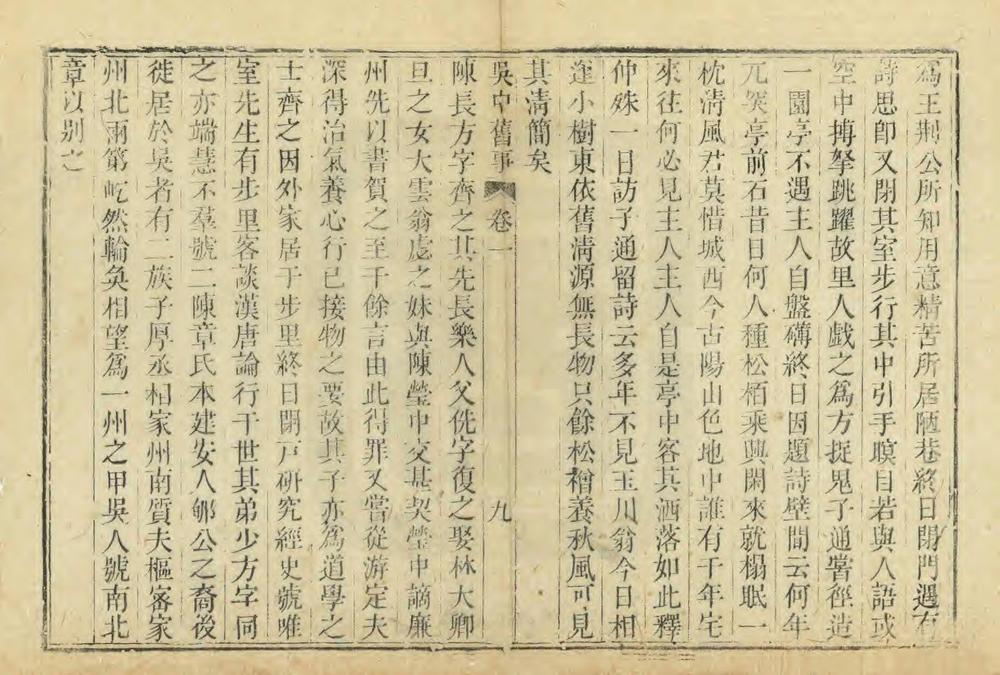 爲王荆公所知用意精苦所居陋巷終日閉門遇有
詩思卽又閉其室步行其中引手瞑目若與人語或
空中摶拏跳躍故里人戯之爲方捉鬼子通嘗徑造
一園亭不遇主人自盤礴終日因題詩壁間云何年
兀突亭前石昔日何人種松栢乘興閑來就榻眠一
枕淸風君莫惜城西今古陽山色地中誰有千年宅
來往何必見主人主人自是亭中客其洒落如此釋
仲殊一日訪子通留詩云多年不見玉川翁今日相
逢小樹東依舊淸源無長物只餘松檜養秋風可見
其淸簡矣
吳中舊事 卷一 九
陳長方字齊之其先長樂人父侁字復之娶林大卿
旦之女大雲翁虙之妹與陳瑩中交甚契瑩中謫廉
州侁以書賀之至千餘言由此得罪又嘗從游定夫
深得治氣養心行已接物之要故其子亦爲道學之
士齊之因外家居于步里終日閉戸研究經史號唯
室先生有步里客談漢唐論行于世其弟少方字同
之亦端慧不羣號二陳章氏本建安人郇公之裔後
徙居於吳者有二族子厚丞相家州南質夫樞密家
州北兩第屹然輪奐相望爲一州之甲吳人號南北
章以别之